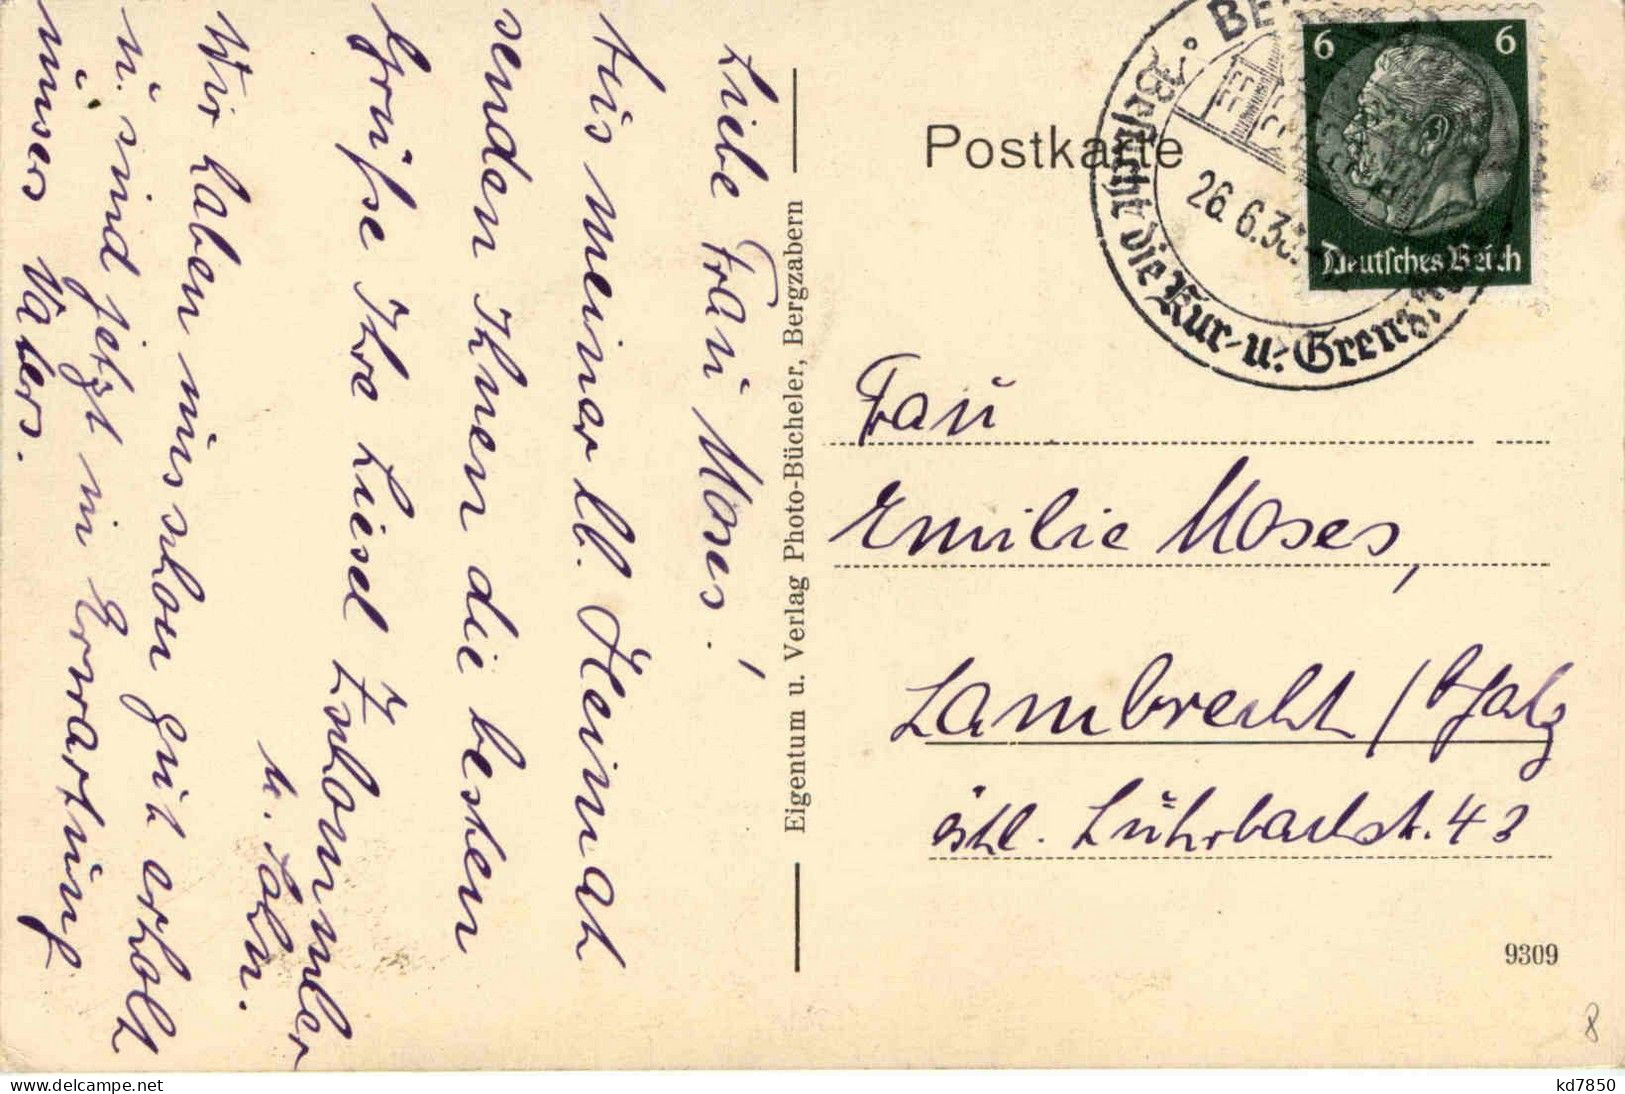 Liebe Frau Moses!
Aus meiner lb. Heimat
senden Ihnen die besten
Grüße Ihre Liesel
u. Sohn.
Wir haben uns schon gut erholt
u. sind jetzt in Erwartung
unseres Vaters.
Eigentum u. Verlag Photo-Bücheler, Bergzabern
Postkarte
Besucht die Kur- u. Grenz
26.6.3
6 6
Deutsches Reich
Frau
Emilie Moses,
Lambrecht / Pfalz
östl. Luhrbachstr. 43
9309
8
kd7850